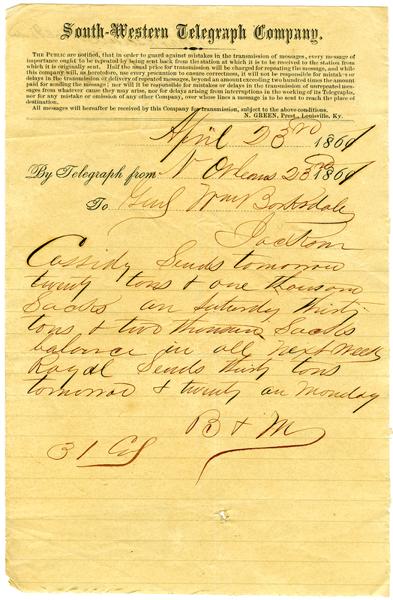 South-Western Telegraph Company.
The Public are notified, that in order to guard against mistakes in the transmission of messages, every message of
importance ought to be repeated by being sent back from the station at which it is to be received to the station from
which it is originally sent. Half the usual price for transmission will be charged for repeating the message, and while
this company will, as heretofore, use every precaution to ensure correctness, it will not be responsible for mistakes or
delays in the transmission or delivery of repeated messages, beyond an amount exceeding two hundred times the amount
paid for sending the message; nor will it be responsible for mistakes or delays in the transmission of unrepeated messa-
ges from whatever cause they may arise, nor for delays arising from interruptions in the working of its Telegraphs,
nor for any mistake or omission of any other Company, over whose lines a message is to be sent to reach the place of
destination.
All messages will hereafter be received by this Company for transmission, subject to the above conditions.
N. GREEN, Prest., Louisville, Ky.
April 23rd 1861
By Telegraph from N Orleans 23rd 1861
To Genl Wm Barksdale
Jackson
Cassidy Sends tomorrow
twenty tons & one thousand
Sacks on Saturday thirty
tons, & two thousand Sacks
balance in all Next Week
Royal Sends thirty tons
tomorrow & twenty on Monday
B & M
31